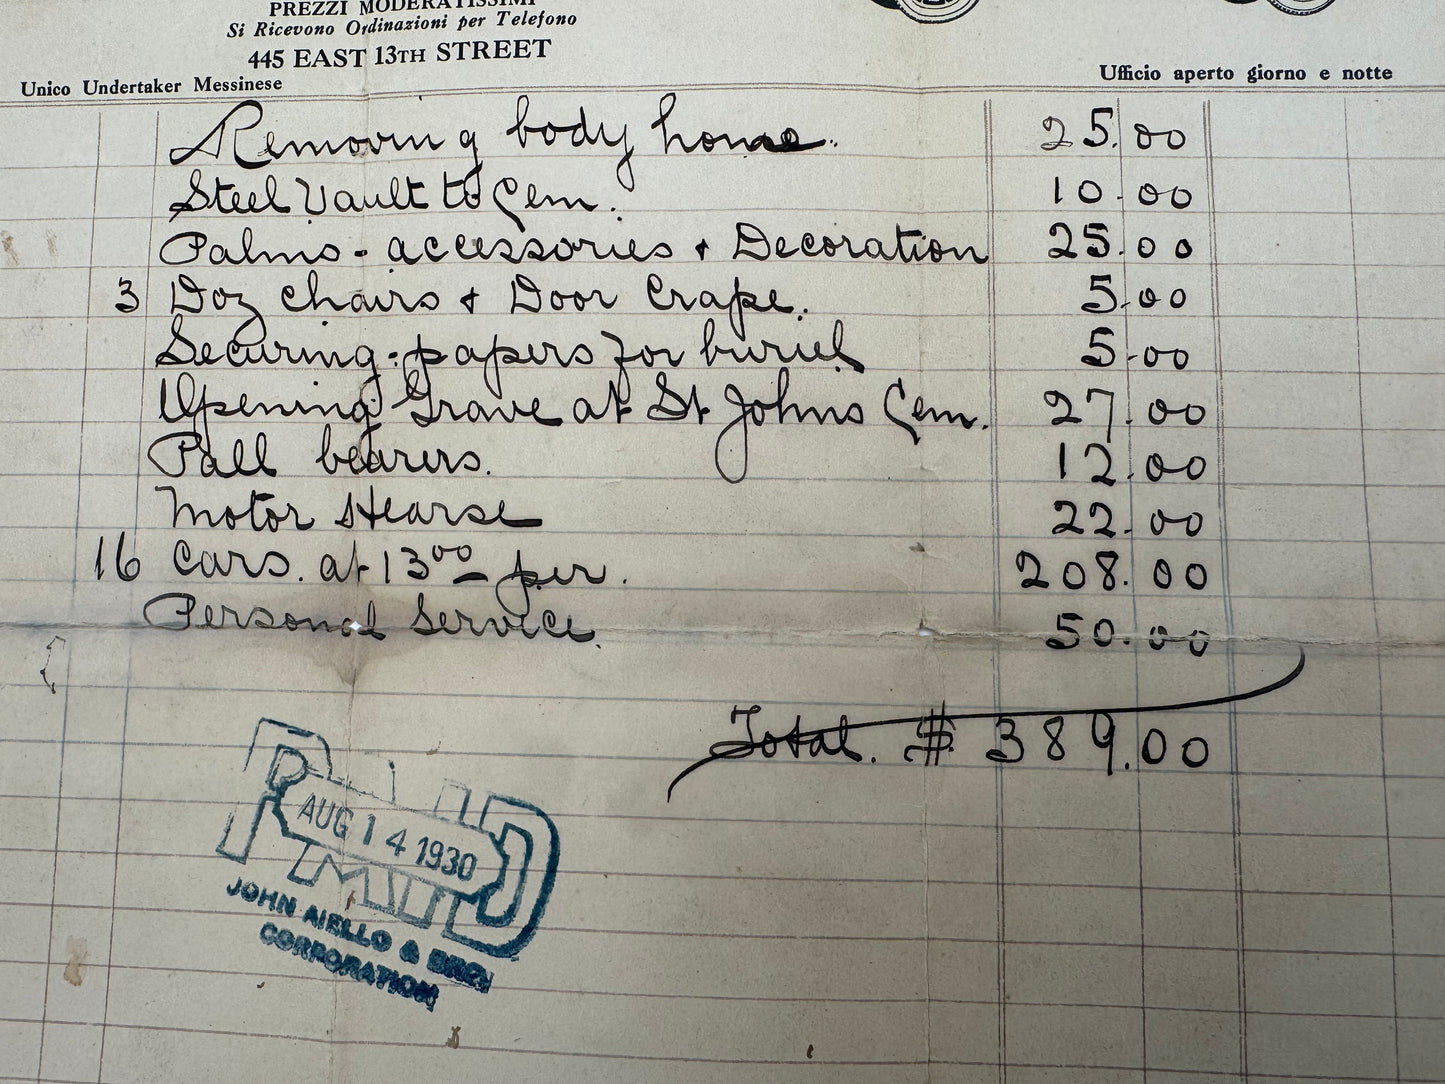 PREZZI MODERATISSIMI
Si Ricevono Ordinazioni per Telefono
445 EAST 13TH STREET
Unico Undertaker Messinese
Ufficio aperto giorno e notte
Removing body home. 25.00
Steel Vault to Cem. 10.00
Palms - accessories & Decoration 25.00
3 Doz chairs & Door Crape. 5.00
Securing papers for buriel 5.00
Opening Grave at St Johns Cem. 27.00
Pall bearers. 12.00
Motor Hearse 22.00
16 Cars. at 13.00 per. 208.00
Personal Service. 50.00
Total. $ 389.00
PAID
AUG 14 1930
JOHN AIELLO & BRO.
CORPORATION